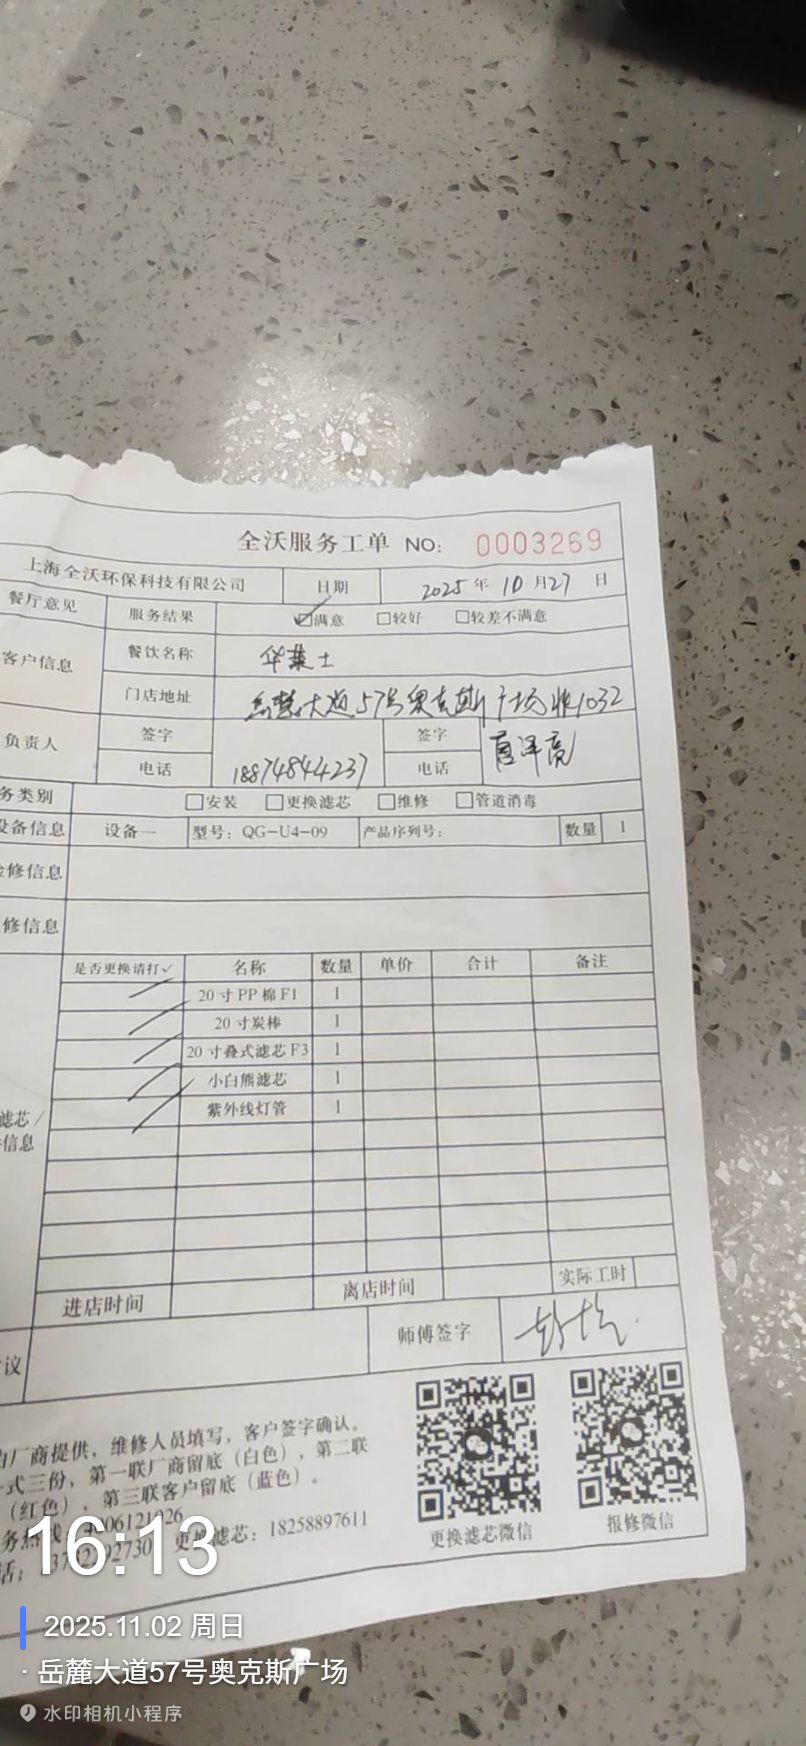 全沃服务工单 NO: 0003269
上海全沃环保科技有限公司 日期 2025年10月27日
餐厅意见 服务结果 ☑满意 □较好 □较差不满意
客户信息 餐饮名称 华莱士
门店地址 岳麓大道57号奥克斯广场 1032
负责人 签字 签字
电话 18874844237 电话
务类别 □安装 □更换滤芯 □维修 □管道消毒
设备信息 设备一 型号：QG-U4-09 产品序列号： 数量 1
检修信息
修信息
是否更换请打✓ 名称 数量 单价 合计 备注
20寸PP棉F1 1
20寸炭棒 1
20寸叠式滤芯F3 1
小白熊滤芯 1
紫外线灯管 1
滤芯/
信息
进店时间 离店时间 实际工时
议 师傅签字
由厂商提供，维修人员填写，客户签字确认。
一式三份，第一联厂商留底（白色），第二联
（红色），第三联客户留底（蓝色）。
更换滤芯：18258897611
更换滤芯微信 报修微信
16:13
2025.11.02 周日
·岳麓大道57号奥克斯广场
水印相机小程序